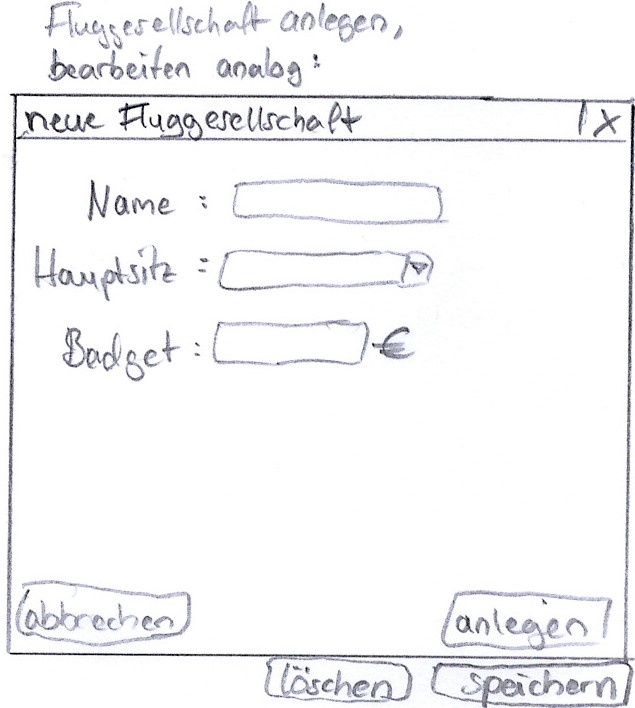 Fluggesellschaft anlegen,
bearbeiten analog:
neue Fluggesellschaft X
Name :
Hauptsitz :
Badget : €
abbrechen anlegen
löschen speichern